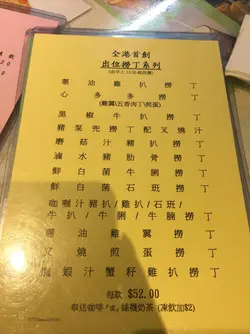 全港首創
出位撈丁系列
蔥油雞扒撈丁
心多多撈丁
(雞翼/五香肉丁/煎蛋)
黑椒牛扒撈丁
豬梨売撈丁配叉燒汁
蘑菇汁豬扒撈丁
滷水豬肋骨撈丁
鮮白菌牛脷撈丁
鮮白菌石班撈丁
咖喱汁豬扒/雞扒/石班/
牛扒/牛脷/牛腩撈丁
蔥油雞翼撈丁
叉燒煎蛋撈丁
龍蝦汁蟹籽雞扒撈丁
每款 $52.00
奉送咖啡"或"絲襪奶茶 (凍飲加$2)